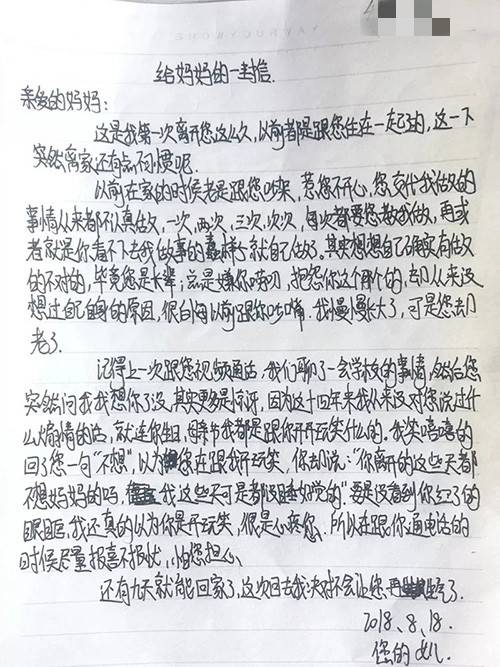 给妈妈的一封信.
亲爱的妈妈:
这是我第一次离开您这么久,以前都是跟您住在一起的,这一下
突然离家还有点不习惯呢.
以前在家的时候老是跟您吵架,惹您不开心,您交代我做的
事情从来都不认真做,一次,两次,三次,次次,每次都要您教我做,再或
者就是你看不下去我做事的蠢样子就自己做了.其实想想自己确实有做
的不对的,毕竟您是长辈;总是嫌你劳叨,把怨你这个那个的,却从来没
想过自己自身的原因,很后悔以前跟你吵嘴.我慢慢长大了,可是您却
老了.
记得上一次跟您视频通话,我们聊了一会学校的事情,然后您
突然问我我想你了没,其实更多是惊讶,因为这十四年来我从来没对您说过什
么煽情的话,就连你生日,母亲节我都是跟你开开玩笑什么的。我笑嘻嘻的
回了您一句“不想”,以为您在跟我开玩笑,你却说:“你离开的这些天都
不想妈妈的吗,我这些天可是都没睡好觉的”.要是没看到你红了的
眼眶,我还真的以为你是开玩笑,很是心疼你.所以在跟你通电话的
时候尽量报喜不报忧,怕您担心.
还有九天就能回家了,这次回去我决对不会让您再生气了.
2018、8、18.
您的女儿.